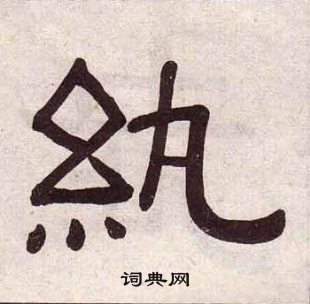 紈
词典网